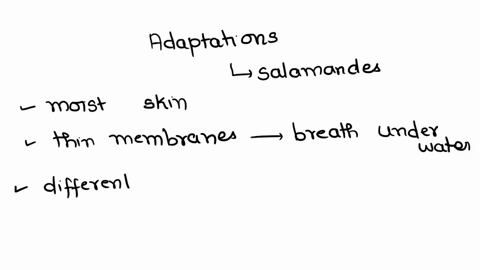 Adaptations
↳ salamandes
✓ moist skin
✓ thin membranes → breath under water
✓ different